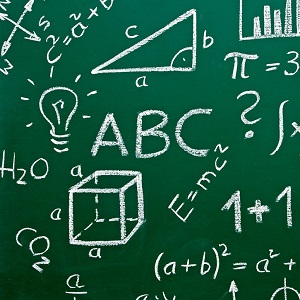 c² = a² + b
c
b
a
π = 3
?
ABC
∫x
H₂O
a
a
a
E=mc²
1+1
CO₂
(a+b)² = a² +
a